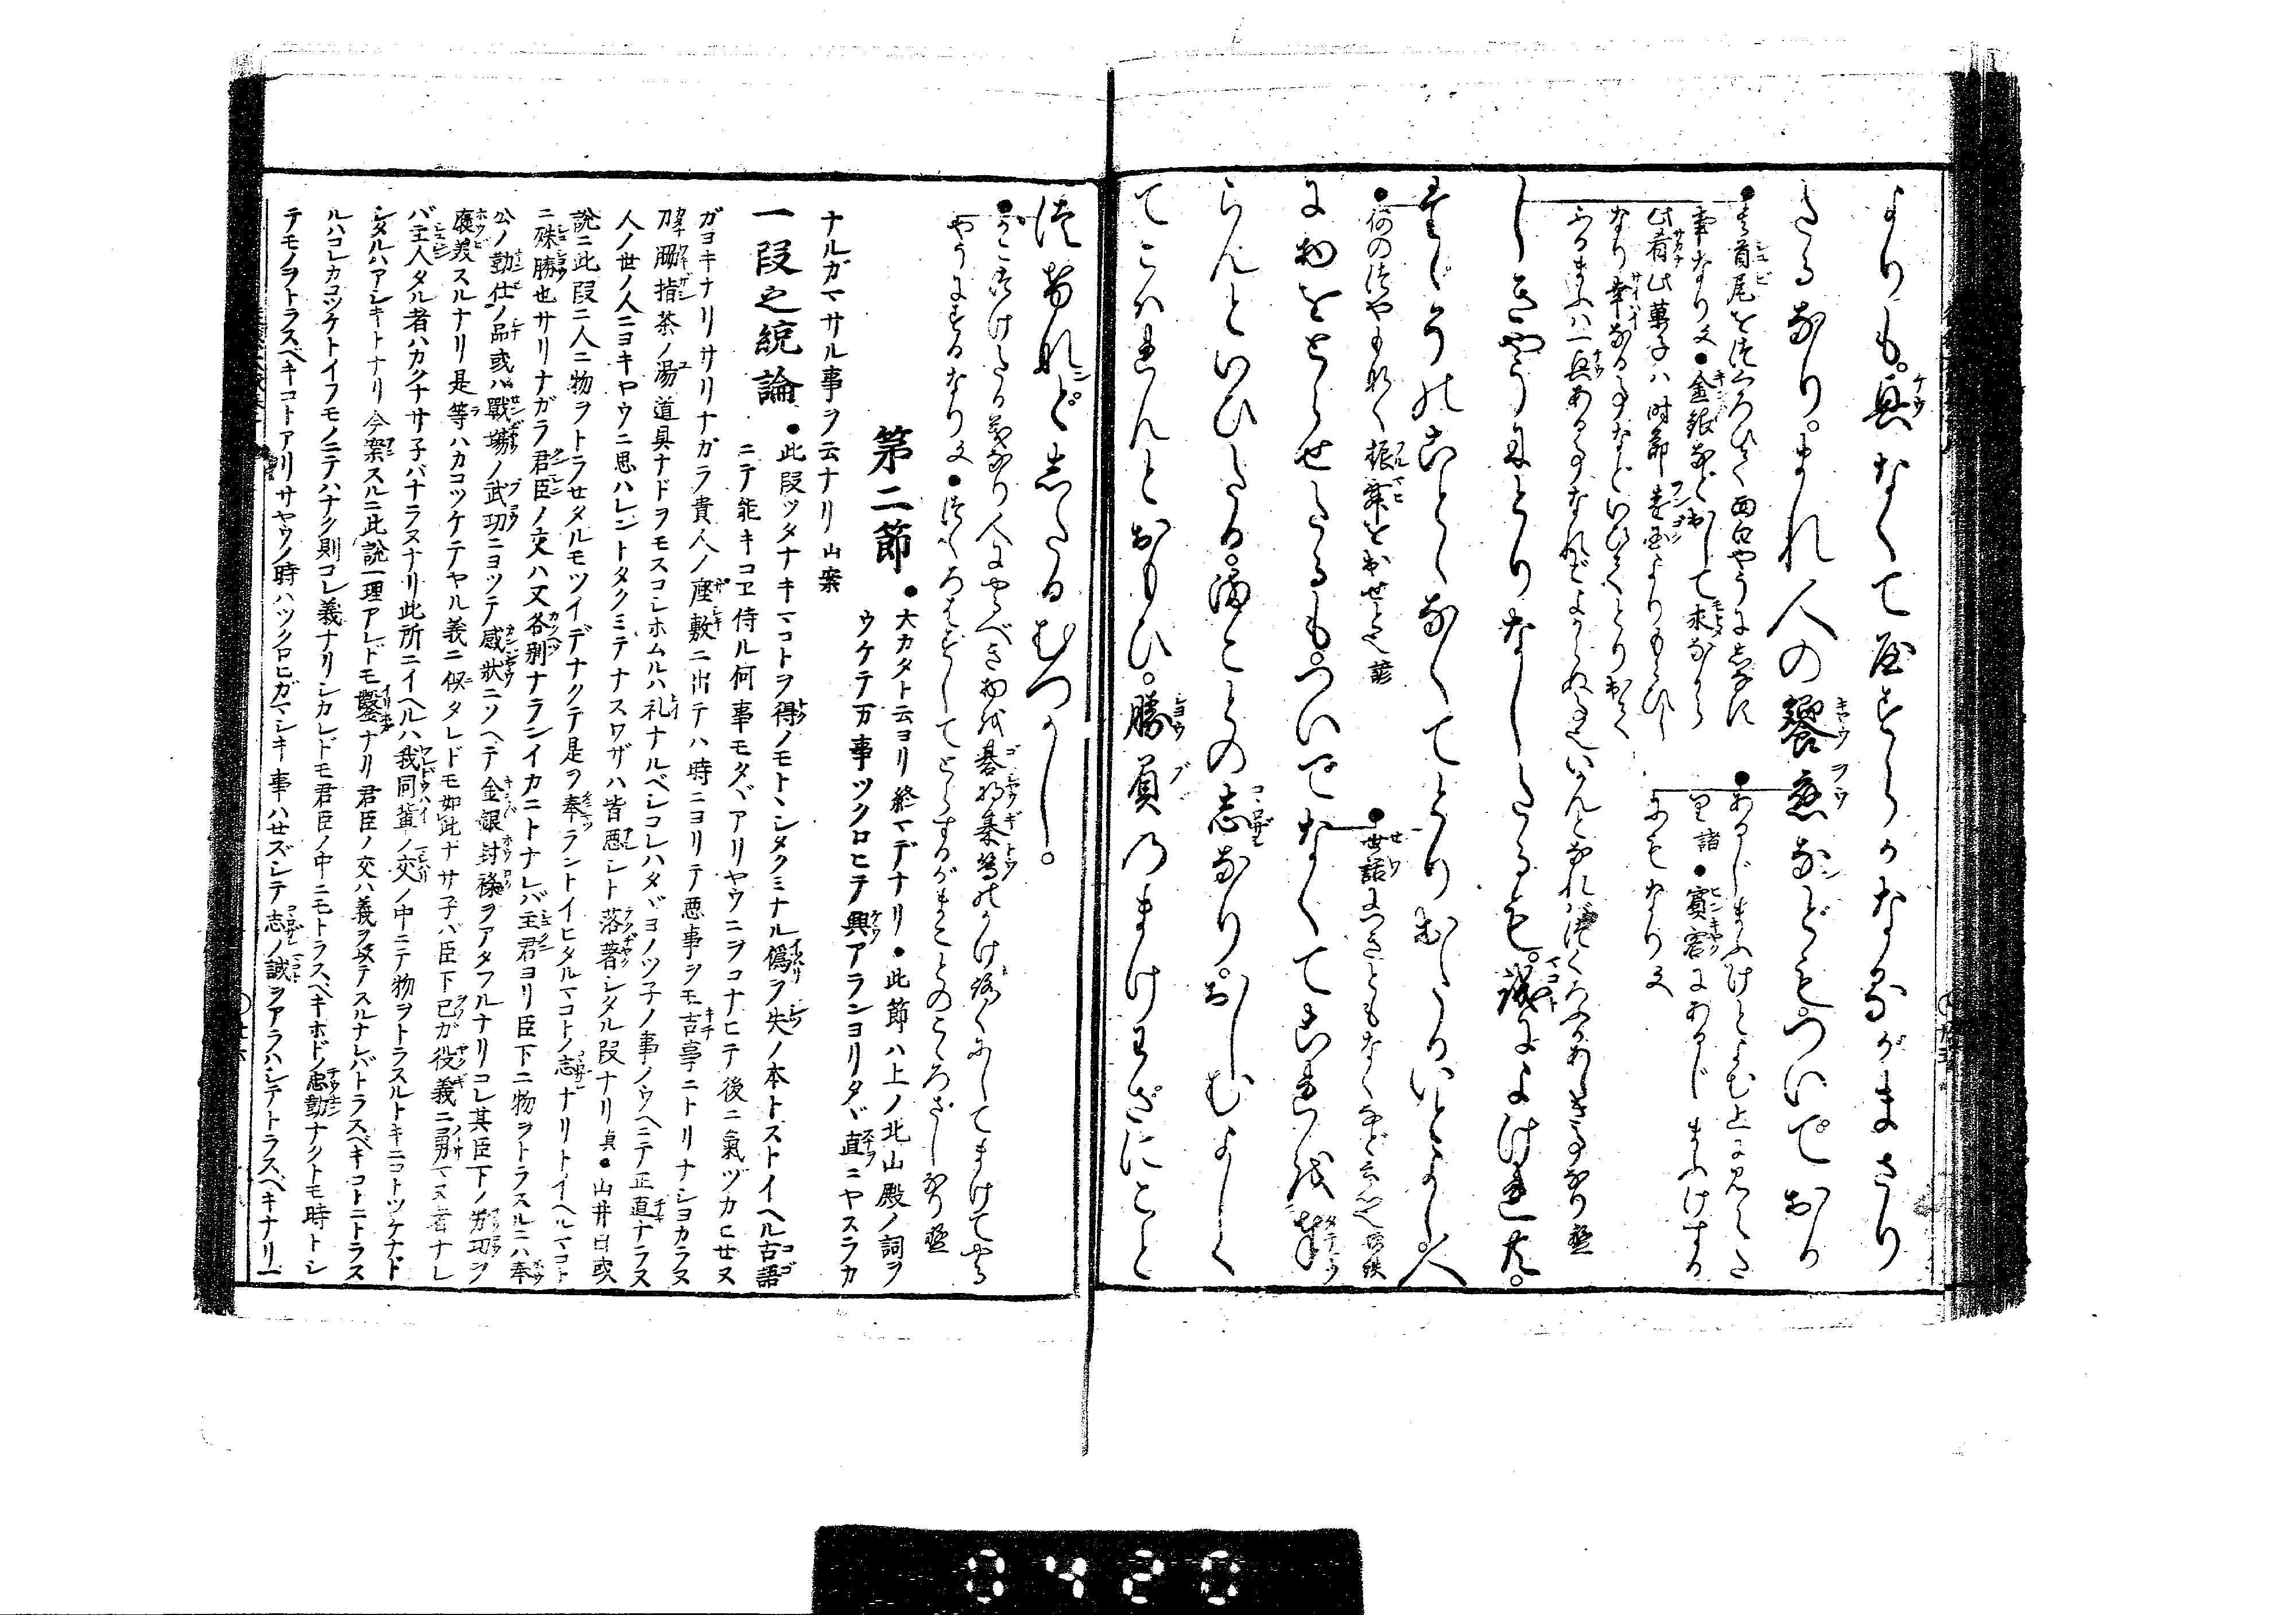 よりも。興なくてやすらかなるがまさり
たるなり。まれ人の饗應などもついでおか
●首尾をつくろひて面白やうに
事なり文●金銀などおして求ながら
此肴此菓子ハ時節
なり幸なる事などいひてとりおく
ふるまふハ一興ある事なれど
●あるじまふけとよむ上に見えた
り諸●賓客にあるじまふけする
にもなり文
しきやうにとりなしたるも。誠によけれども。
たゞそのことゝなくてとり出たるいとよし。人
●何のつやもなく振舞を出せと也諺
●世話につきともなくなど云心也
に物をとらせたるも。ついでなくてこれを奉
らんといひたる。まことの志なり。おしむよしし
てこはれんとおもひ。勝負のまけわざにこと
つけなどしたるむつかし。
●かこつけたる義なり人にやるべき物を碁将棊等のかけ禄にしてまけてやる
やうにするなり文●つくろはずしてとらするがまことのこゝろざしなり盤
第二節●大カタト云ヨリ終マデナリ●此節ハ上ノ北山殿ノ詞ヲ
ウケテ万事ツクロヒテ興アランヨリタヾ直ニヤスラカ
ナルガマサル事ヲ云ナリ山案
一段之統論●此段ツタナキマコトヲ得ノモトヽシタクミナル偽ヲ失ノ本トストイヘル古語
ニテ能キコヱ侍ル何事モタヾアリヤウニヲコナヒテ後ニ氣ヅカヒセヌ
ガヨキナリサリナカラ貴人ノ座敷ニ出テハ時ニヨリテ悪事ヲモ吉事ニトリナシヨカラヌ
刀脇指茶ノ湯道具ナドヲモスコシホムルハ礼ナルベシコレハタヾヨノツ子ノ事ノウヘニテ正直ナラヌ
人ノ世ノ人ニヨキヤウニ思ハレントタクミテナスワザハ皆悪シト落著シタル段ナリ貞●山井曰或
説ニ此段ニ人ニ物ヲトラサタルモツイデナクテ是ヲ奉ラントイヒタルマコトノ志ナリトイヘルマコト
ニ殊勝也サリナガラ君臣ノ交ハ又各別ナランイカニトナレバ主君ヨリ臣下ニ物ヲトラスルニハ奉
公ノ勤仕ノ品或ハ戰場ノ武功ニヨツテ感状ニソヘテ金銀封禄ヲアタフルナリコレ其臣下ノ労功ヲ
褒美スルナリ是等ハカコツケテヤル義ニ似タレドモ如此ナサ子バ臣下己ガ役義ニ勇マヌ者ナレ
バ主人タル者ハカクナサ子バナラヌナリ此所ニイヘルハ我同輩ノ交ノ中ニテ物ヲトラスルトキニコトツケナド
シタルハアシキトナリ今案スルニ此説一理アレドモ鑿ナリ君臣ノ交ハ義ヲ以テスルナレバトラスベキコトニトラス
ルハコレカコツケトイフモノニテハナク則コレ義ナリシカレドモ君臣ノ中ニモトラスベキホドノ忠勤ナクトモ時トシ
テモノヲトラスベキコトアリサヤウノ時ハツクロヒガマシキ事ハセズシテ志ノ誠ヲアラハシテトラスベキナリ
0420